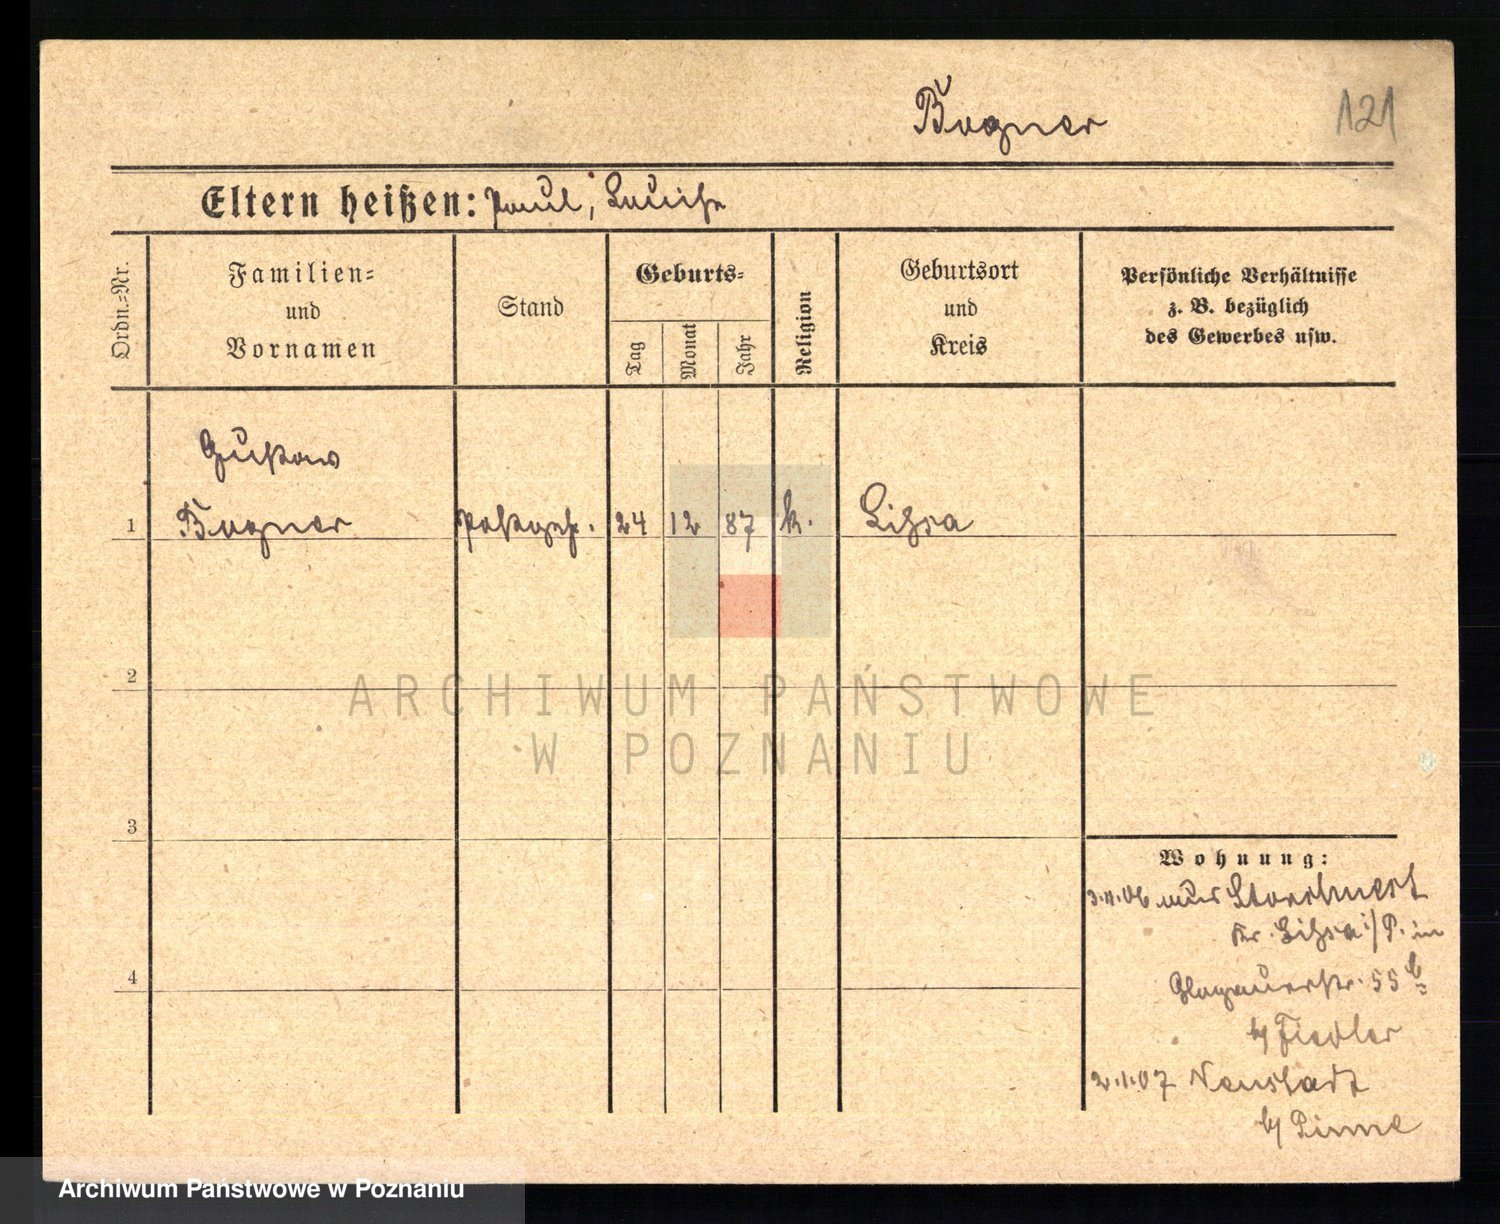 Bogner
121
Eltern heißen: Paul, Louise
Ordn.-Nr.
Familien-
und
Vornamen
Stand
Geburts-
Tag
Monat
Jahr
Religion
Geburtsort
und
Kreis
Persönliche Verhältnisse
z. B. bezüglich
des Gewerbes usw.
Gustav
1 Bogner Postgeh. 24 12 87 k. Lissa
2
3
4
Wohnung:
3.11.06 aus Storchnest
Kr. Lissa i/P. in
Glogauerstr. 55 b
b/ Fiedler
2.1.07 Neustadt
b/ Pinne
ARCHIWUM PAŃSTWOWE
W POZNANIU
Archiwum Państwowe w Poznaniu